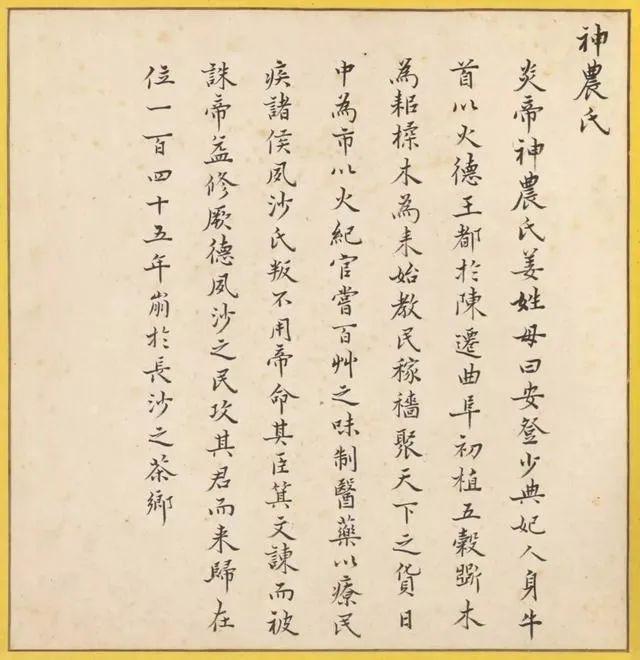 神農氏
炎帝神農氏姜姓母曰安登少典妃人身牛
首以火德王都於陳遷曲阜初植五穀斲木
為耜楺木為耒始教民稼穡聚天下之貨日
中為市以火紀官嘗百艸之味制醫藥以療民
疾諸侯夙沙氏叛不用帝命其臣箕文諫而被
誅帝益修厥德夙沙之民攻其君而来歸在
位一百四十五年崩於長沙之茶鄉